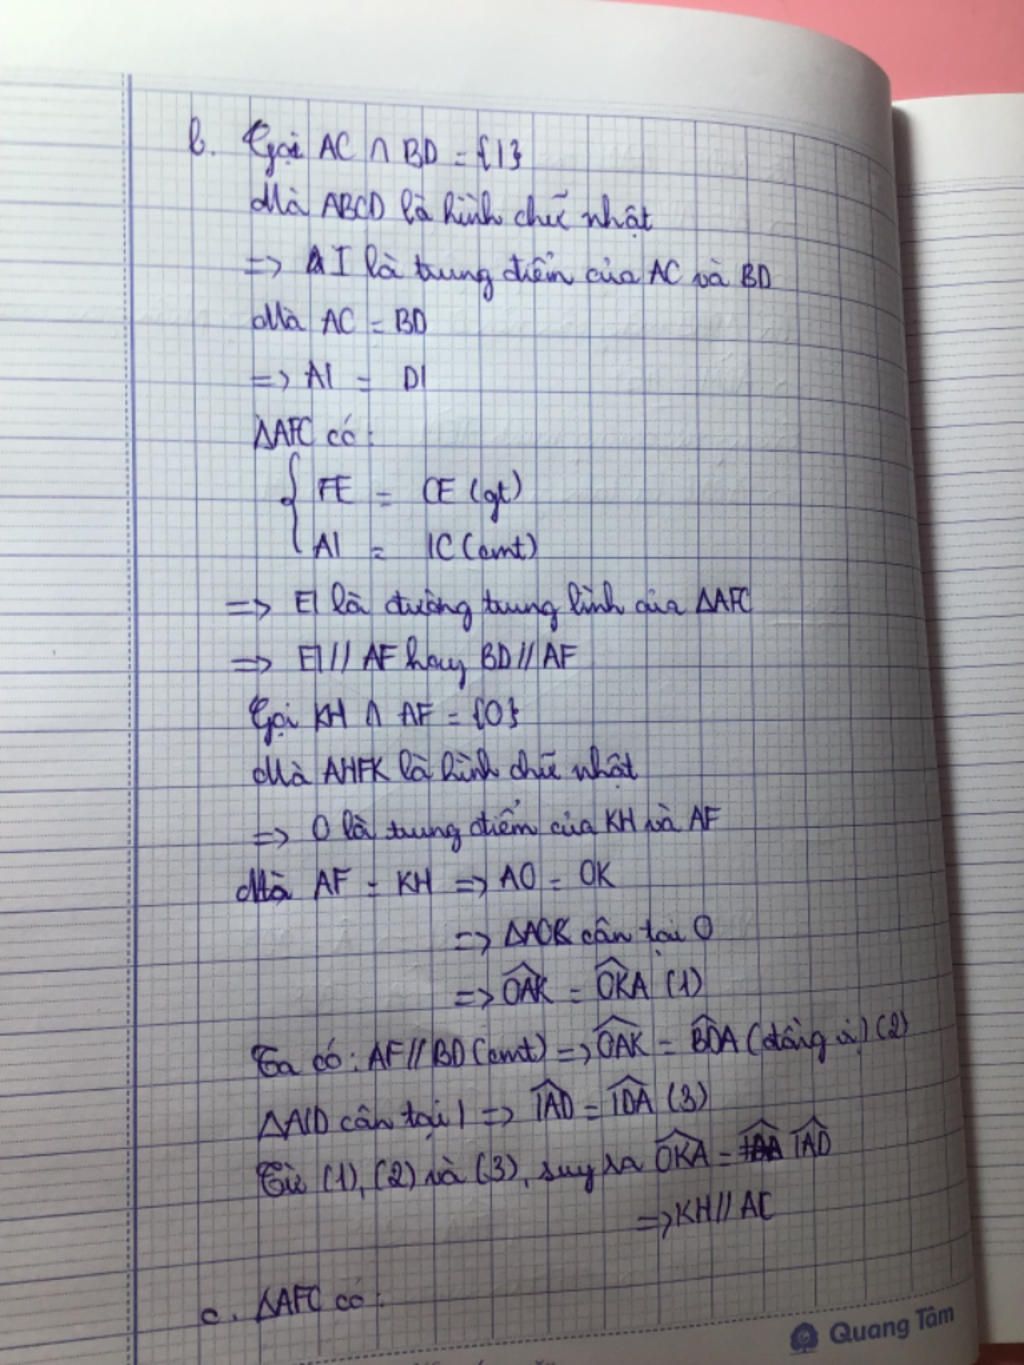 b. Gọi AC ∩ BD = {I}
Mà ABCD là hình chữ nhật
=> I là trung điểm của AC và BD
Mà AC = BD
=> AI = DI
ΔAFC có:
{ FE = CE (gt)
AI = IC (cmt)
=> EI là đường trung bình của ΔAFC
=> EI // AF hay BD // AF
Gọi KH ∩ AF = {O}
Mà AHFK là hình chữ nhật
=> O là trung điểm của KH và AF
Mà AF = KH => AO = OK
=> ΔAOK cân tại O
=> \widehat{OAK} = \widehat{OKA} (1)
Ta có: AF // BD (cmt) => \widehat{OAK} = \widehat{BDA} (đồng vị) (2)
ΔAID cân tại I => \widehat{IAD} = \widehat{IDA} (3)
Từ (1), (2) và (3), suy ra \widehat{OKA} = \widehat{IAD}
=> KH // AC
c. ΔAFC có:
Quang Tâm